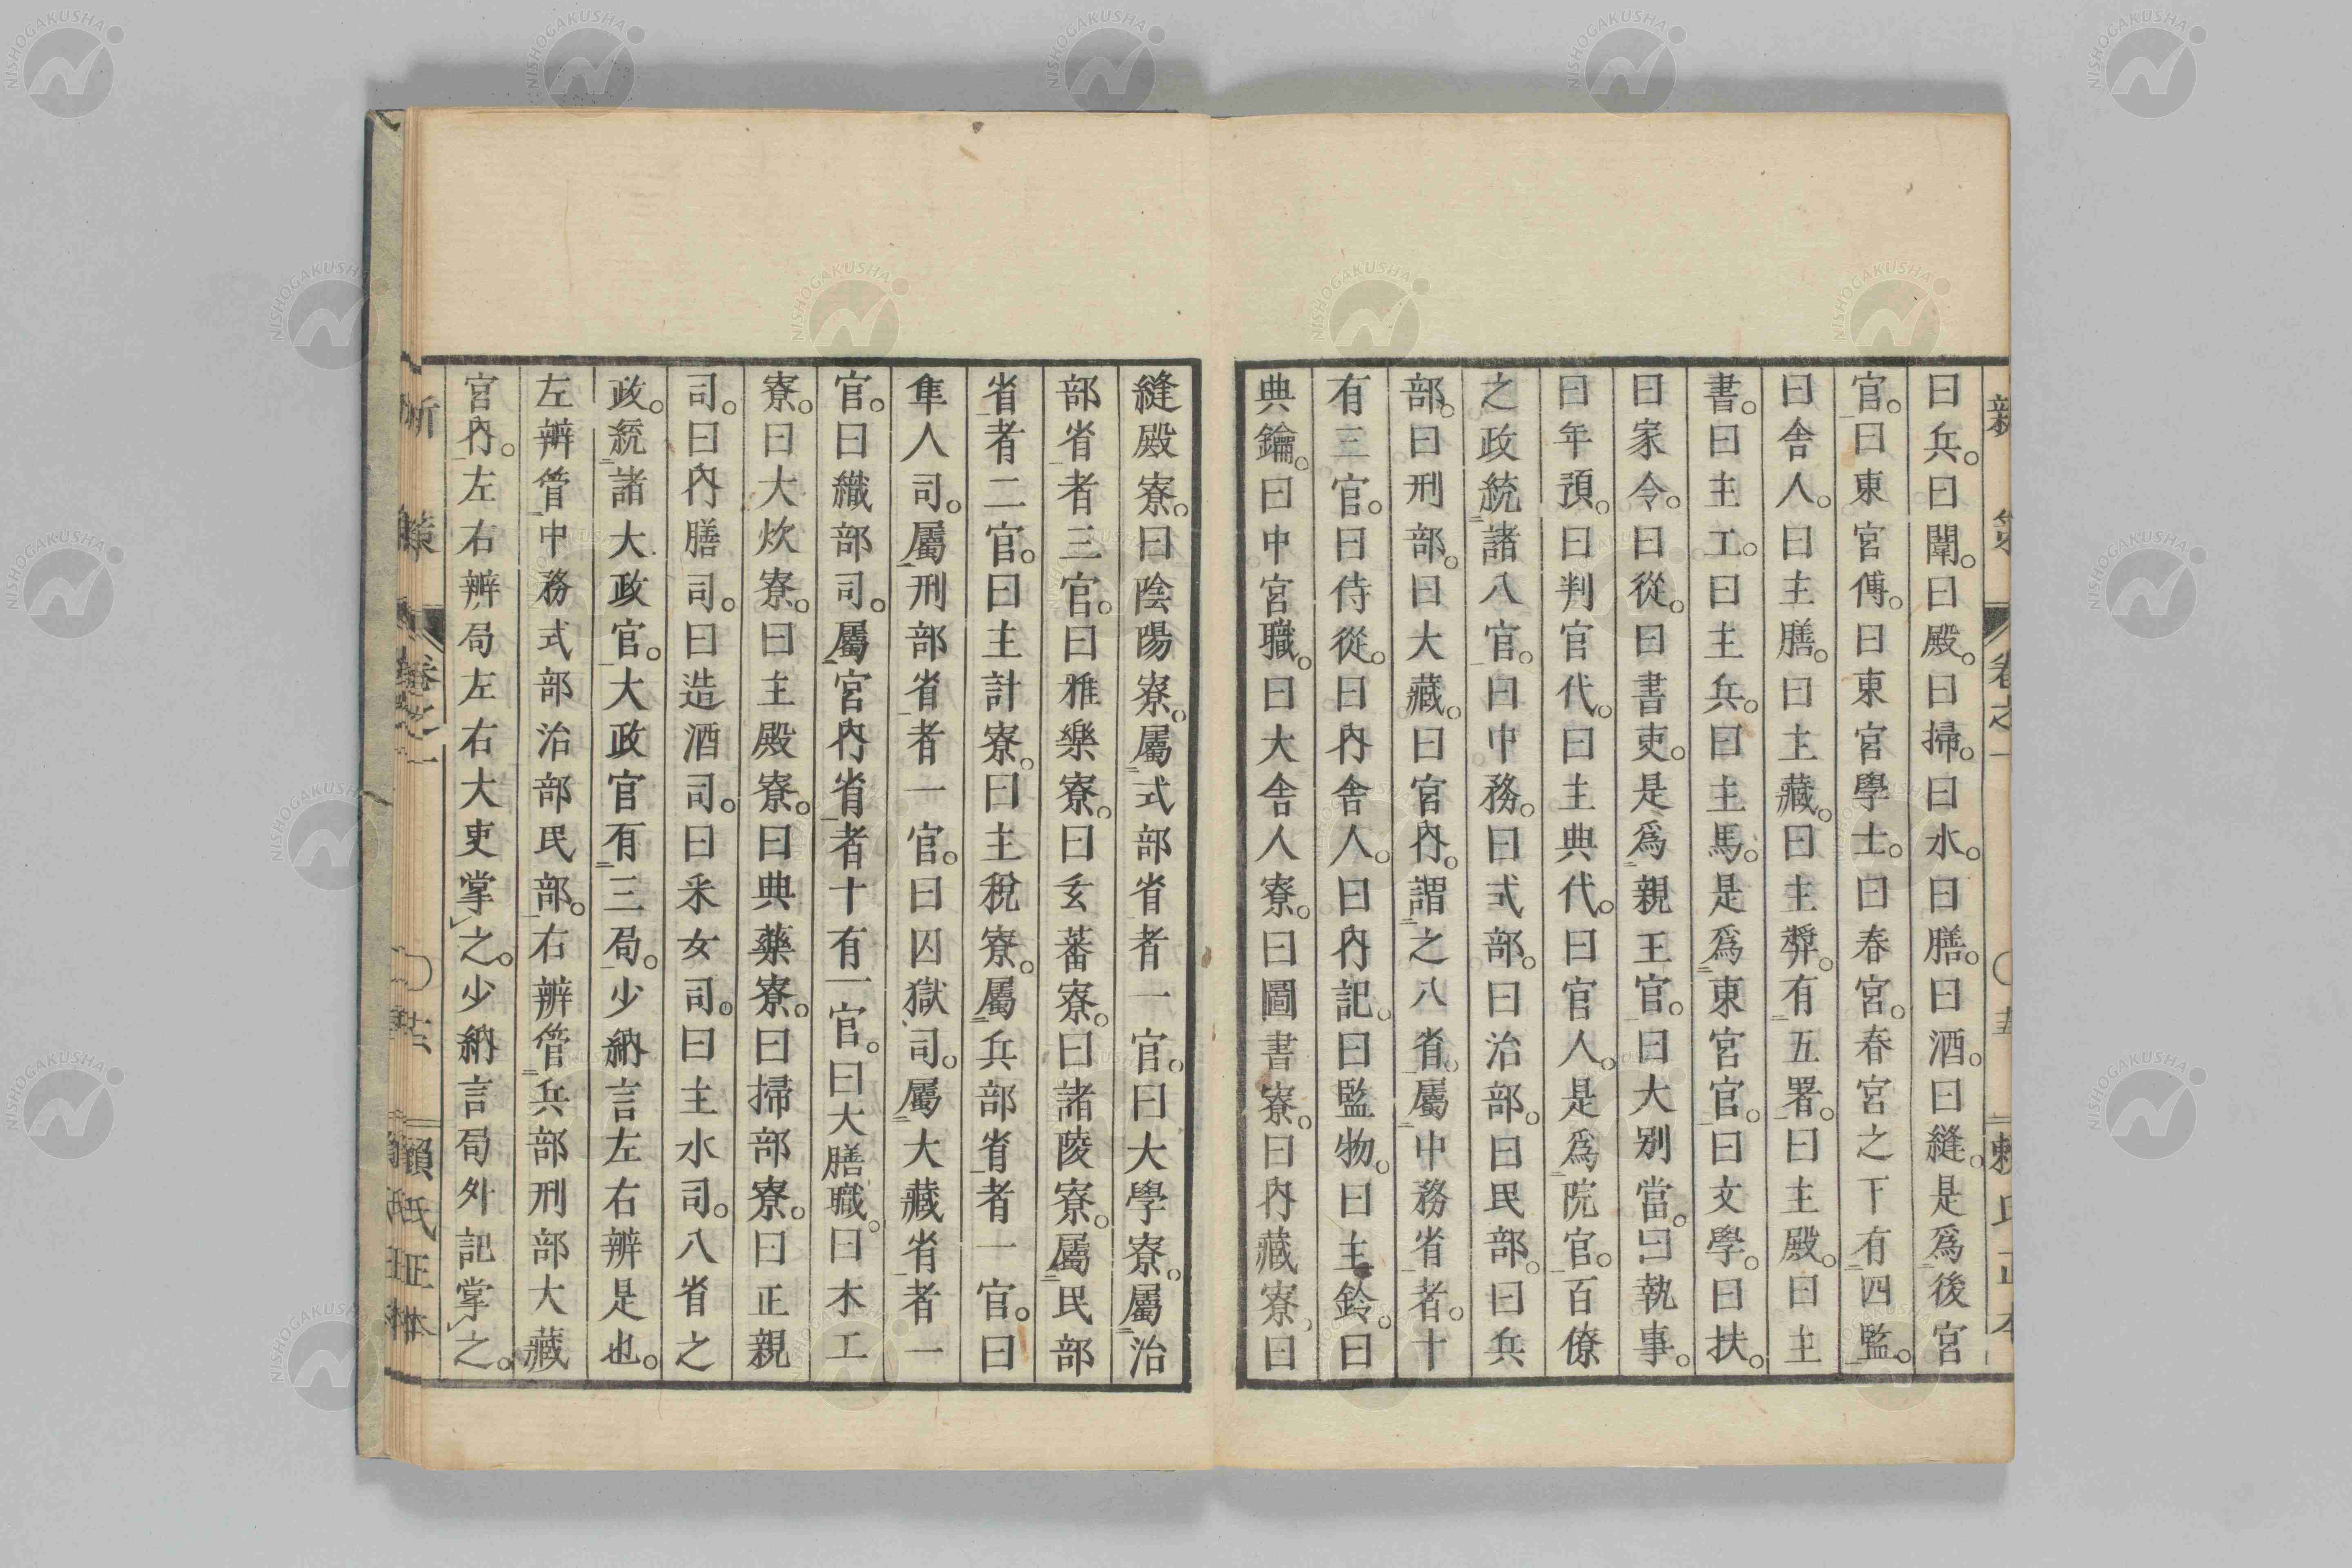 曰兵。曰闈。曰殿。曰掃。曰水。曰膳。曰酒。曰縫。是爲後宮
官。曰東宮傅。曰東宮學士。曰春宮。春宮之下有四監。
曰舍人。曰主膳。曰主藏。曰主漿。有五署。曰主殿。曰主
書。曰主工。曰主兵。曰主馬。是爲東宮官。曰文學。曰扶。
曰家令。曰從。曰書吏。是爲親王官。曰大別當。曰執事。
曰年預。曰判官代。曰主典代。曰官人。是爲院官。百僚
之政統諸八官。曰中務。曰式部。曰治部。曰民部。曰兵
部。曰刑部。曰大藏。曰宮內。謂之八省。屬中務省者。十
有三官。曰侍從。曰內舍人。曰內記。曰監物。曰主鈴。曰
典鑰。曰中宮職。曰大舍人寮。曰圖書寮。曰內藏寮。曰
縫殿寮。曰陰陽寮。屬式部省者一官。曰大學寮。屬治
部省者三官。曰雅樂寮。曰玄蕃寮。曰諸陵寮。屬民部
省者二官。曰主計寮。曰主稅寮。屬兵部省者一官。曰
隼人司。屬刑部省者一官。曰囚獄司。屬大藏省者一
官。曰織部司。屬宮內省者十有一官。曰大膳職。曰木工
寮。曰大炊寮。曰主殿寮。曰典藥寮。曰掃部寮。曰正親
司。曰內膳司。曰造酒司。曰采女司。曰主水司。八省之
政。統諸大政官。大政官有三局。少納言左右辨是也。
左辨管中務式部治部民部。右辨管兵部刑部大藏
宮內。左右辨局左右大吏掌之。少納言局外記掌之。
新策 卷之一
賴氏正本
NISHOGAKUSHA